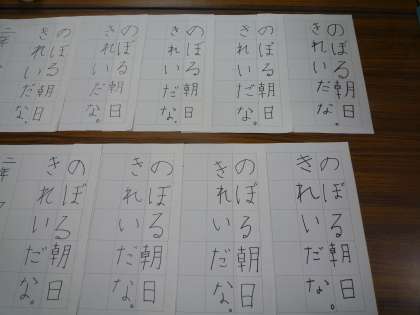 のぼる朝日
きれいだな。
のぼる朝日
きれいだな。
のぼる朝日
きれいだな。
のぼる朝日
きれいだな。
のぼる朝日
きれいだな。
のぼる朝日
きれいだな。
のぼる朝日
きれいだな。
のぼる朝日
きれいだな。
のぼる朝日
きれいだな。
二年